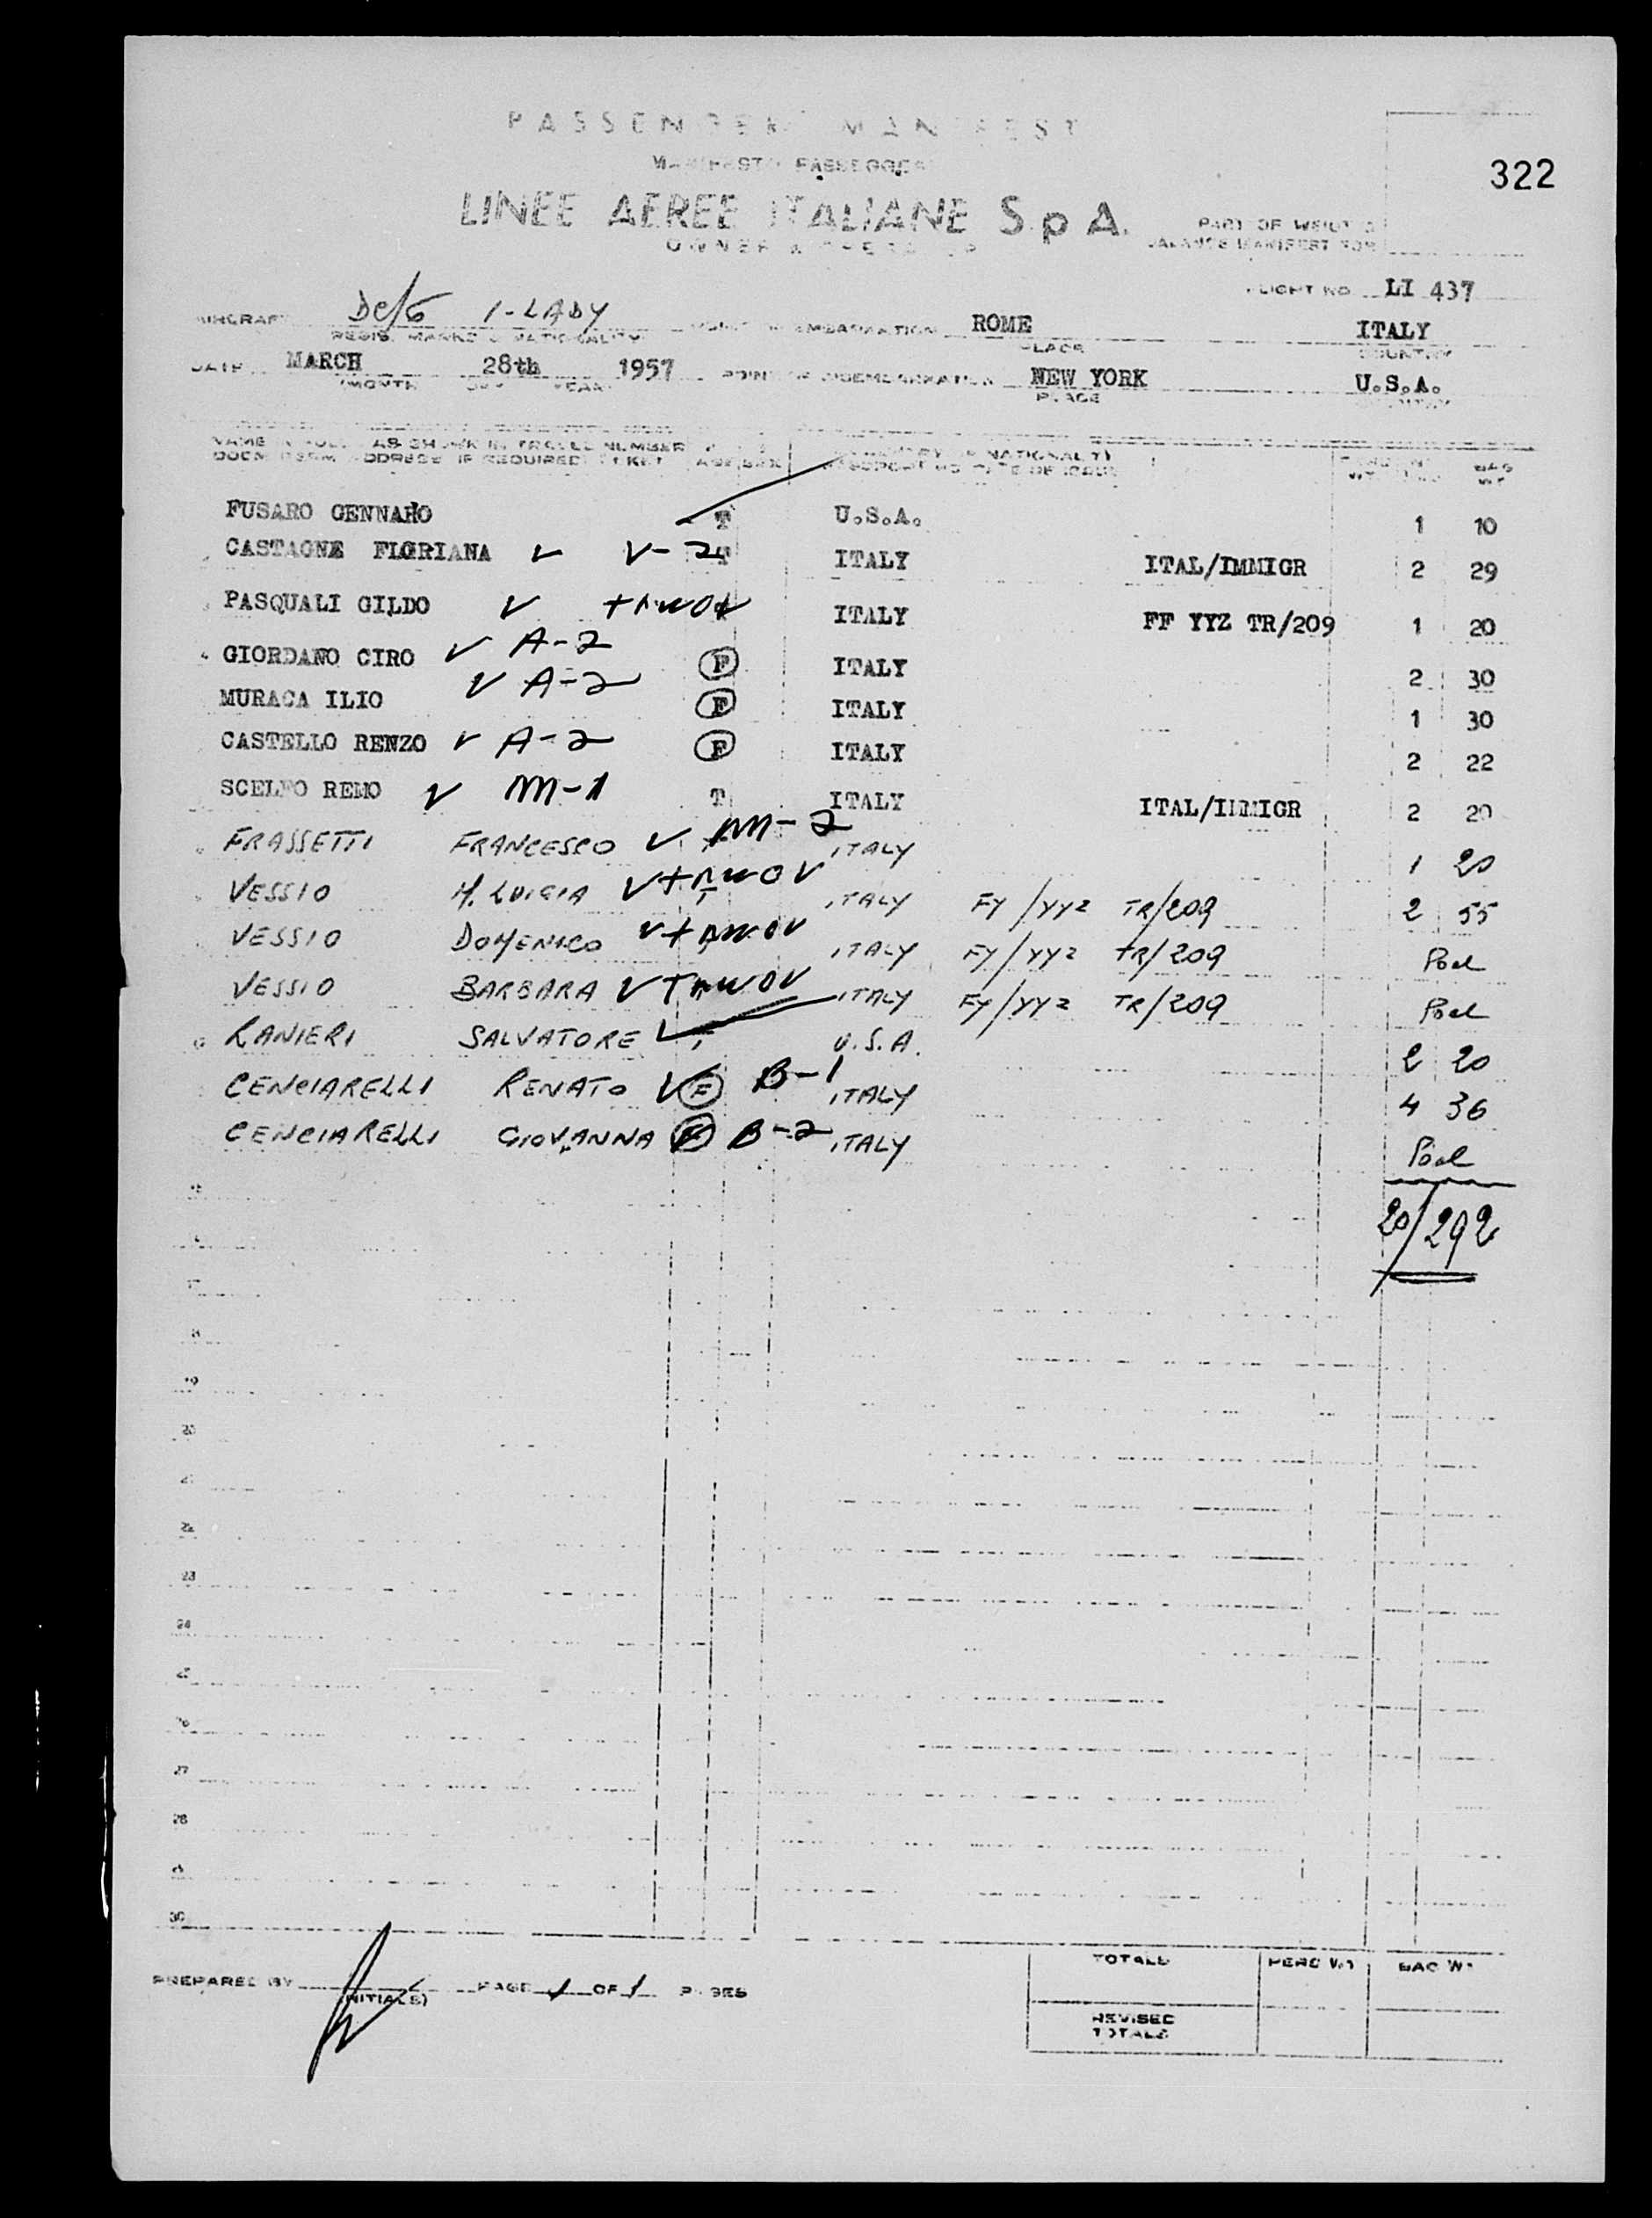 PASSENGER MANIFEST
MANIFESTO PASSEGGERI
322
LINEE AEREE ITALIANE S.p.A.
OWNER & OPERATOR
PART OF WEIGHT &
BALANCE MANIFEST FOR
FLIGHT NO. LI 437
AIRCRAFT Dc/6 I-LADY POINT OF EMBARKATION ROME ITALY
REGIS. MARKS & NATIONALITY PLACE COUNTRY
DATE MARCH 28th 1957 POINT OF DISEMBARKATION NEW YORK U.S.A.
MONTH DAY YEAR PLACE COUNTRY
NAME IN FULL AS SHOWN IN TRAVEL NUMBER
DOCM PERM ADDRESS IF REQUIRED TICKET AGE SEX PASSPORT NO DATE OF ISSUE BAG WT
FUSARO GENNARO T U.S.A. 1 10
CASTAGNE FLORIANA V V-2 T ITALY ITAL/IMMIGR 2 29
PASQUALI GILDO V ITALY FF YYZ TR/209 1 20
GIORDANO CIRO V A-2 F ITALY 2 30
MURACA ILIO V A-2 F ITALY 1 30
CASTELLO RENZO V A-2 F ITALY 2 22
SCELFO REMO V M-1 T ITALY ITAL/IMMIGR 2 20
FRASSETTI FRANCESCO V M-2 ITALY 1 20
VESSIO M. LUIGIA V ITALY FY/YYZ TR/209 2 55
VESSIO DOMENICO V ITALY FY/YYZ TR/209 Pool
VESSIO BARBARA V ITALY FY/YYZ TR/209 Pool
RANIERI SALVATORE V T U.S.A. 2 20
CENCIARELLI RENATO V F B-1 ITALY 4 36
CENCIARELLI GIOVANNA F B-2 ITALY Pool
20/292
20
22
23
24
27
28
30
PREPARED BY PAGE 1 OF 1 PAGES
(INITIALS)
TOTALS PERS WT BAG WT
REVISED
TOTALS